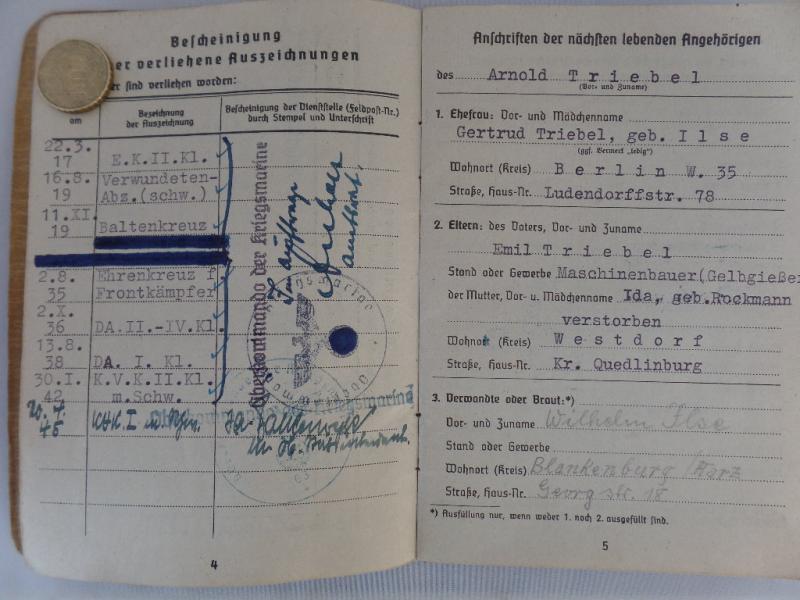 Bescheinigung
er verliehene Auszeichnungen
er sind verliehen worden:
am
Bezeichnung
der Auszeichnung
Bescheinigung der Dienststelle (Feldpost-Nr.)
durch Stempel und Unterschrift
22.3.
17 E.K.II.Kl.
16.8. Verwundeten-
19 Abz.(schw.)
11.XI.
19 Baltenkreuz
2.8. Ehrenkreuz f
35 Frontkämpfer
2.X.
36 DA.II.-IV.Kl.
13.8.
38 DA. I. Kl.
30.I. K.V.K.II.Kl.
42 m.Schw.
Oberkommando der Kriegsmarine
Im Auftrage
Oberkommando der Kriegsmarine
20. 4.
45
4
Anschriften der nächsten lebenden Angehörigen
des Arnold Triebel
(Vor- und Zuname)
1. Ehefrau: Vor- und Mädchenname
Gertrud Triebel, geb. Ilse
(ggf. Vermerk „ledig")
Wohnort (Kreis) Berlin W. 35
Straße, Haus-Nr. Ludendorffstr. 78
2. Eltern: des Vaters, Vor- und Zuname
Emil Triebel
Stand oder Gewerbe Maschinenbauer(Gelbgießer
der Mutter, Vor- u. Mädchenname Ida, geb.Rockmann
verstorben
Wohnort (Kreis) Westdorf
Straße, Haus-Nr. Kr. Quedlinburg
3. Verwandte oder Braut:*)
Vor- und Zuname Wilhelm Ilse
Stand oder Gewerbe
Wohnort (Kreis) Blankenburg/Harz
Straße, Haus-Nr. Georgstr. 18
*) Ausfüllung nur, wenn weder 1. noch 2. ausgefüllt sind.
5